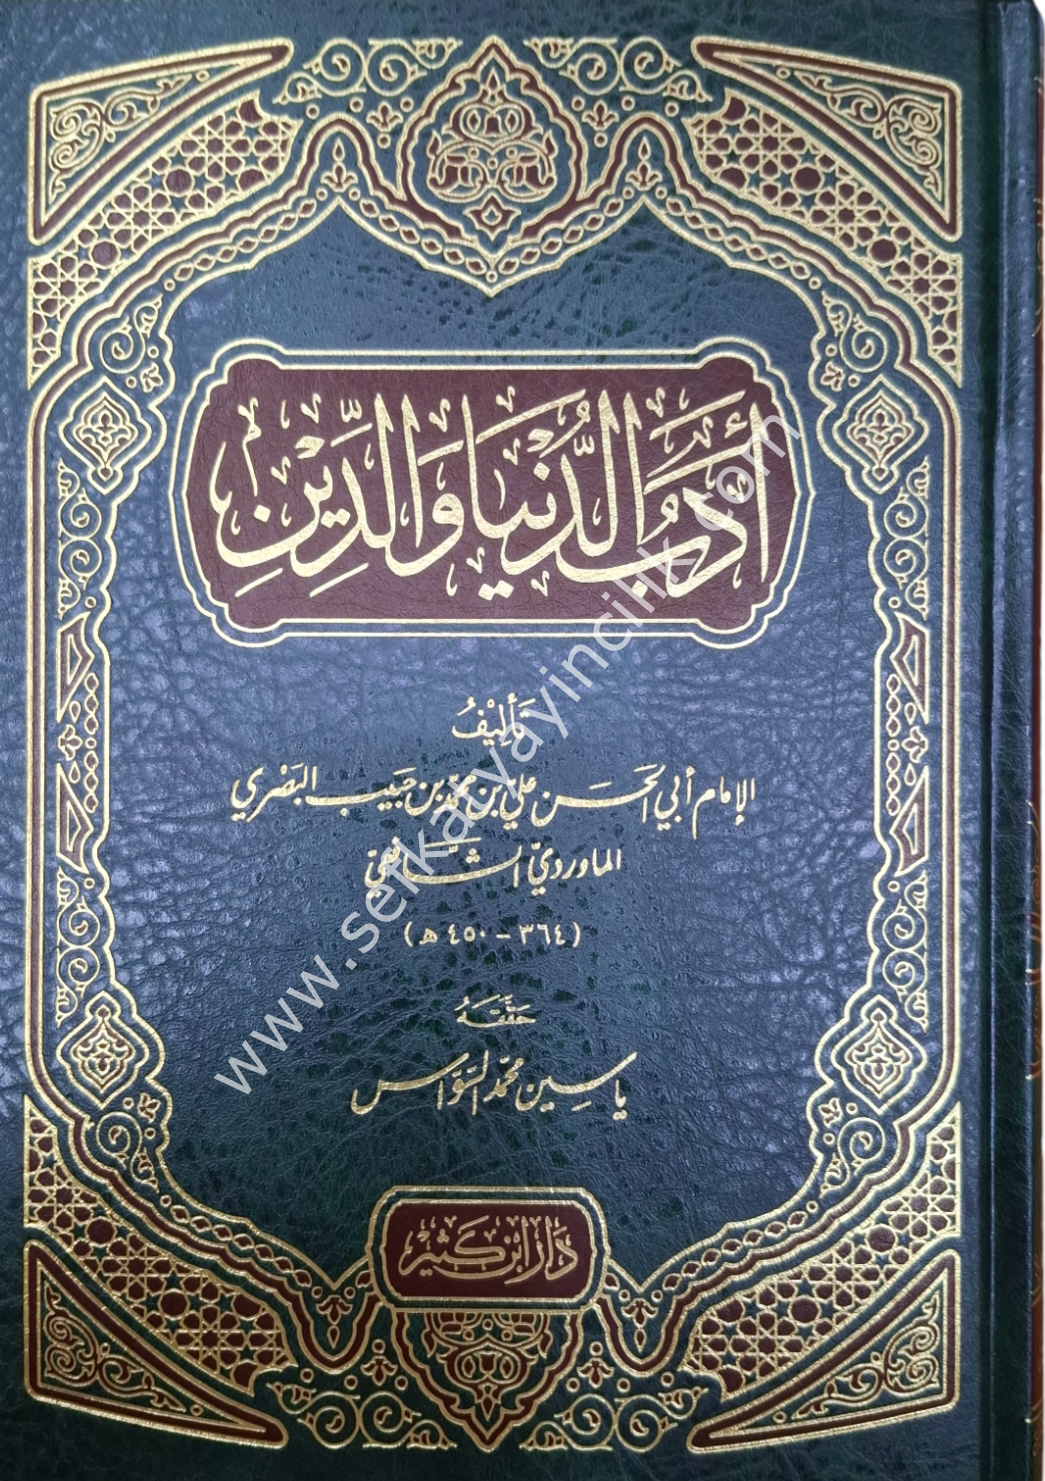 أَدَبُ الدُّنْيَا وَالدِّيْنِ
تَأليْفُ
الإمام أبي الحسن علي بن محمد بن حبيب البَصْري
الماورديّ الشَّافعيّ
(٣٦٤ - ٤٥٠ هـ)
حَقَّقَهُ
ياسين محمّد السَّوّاس
دَار ابْن كَثير
www.serkatyayincilik.com